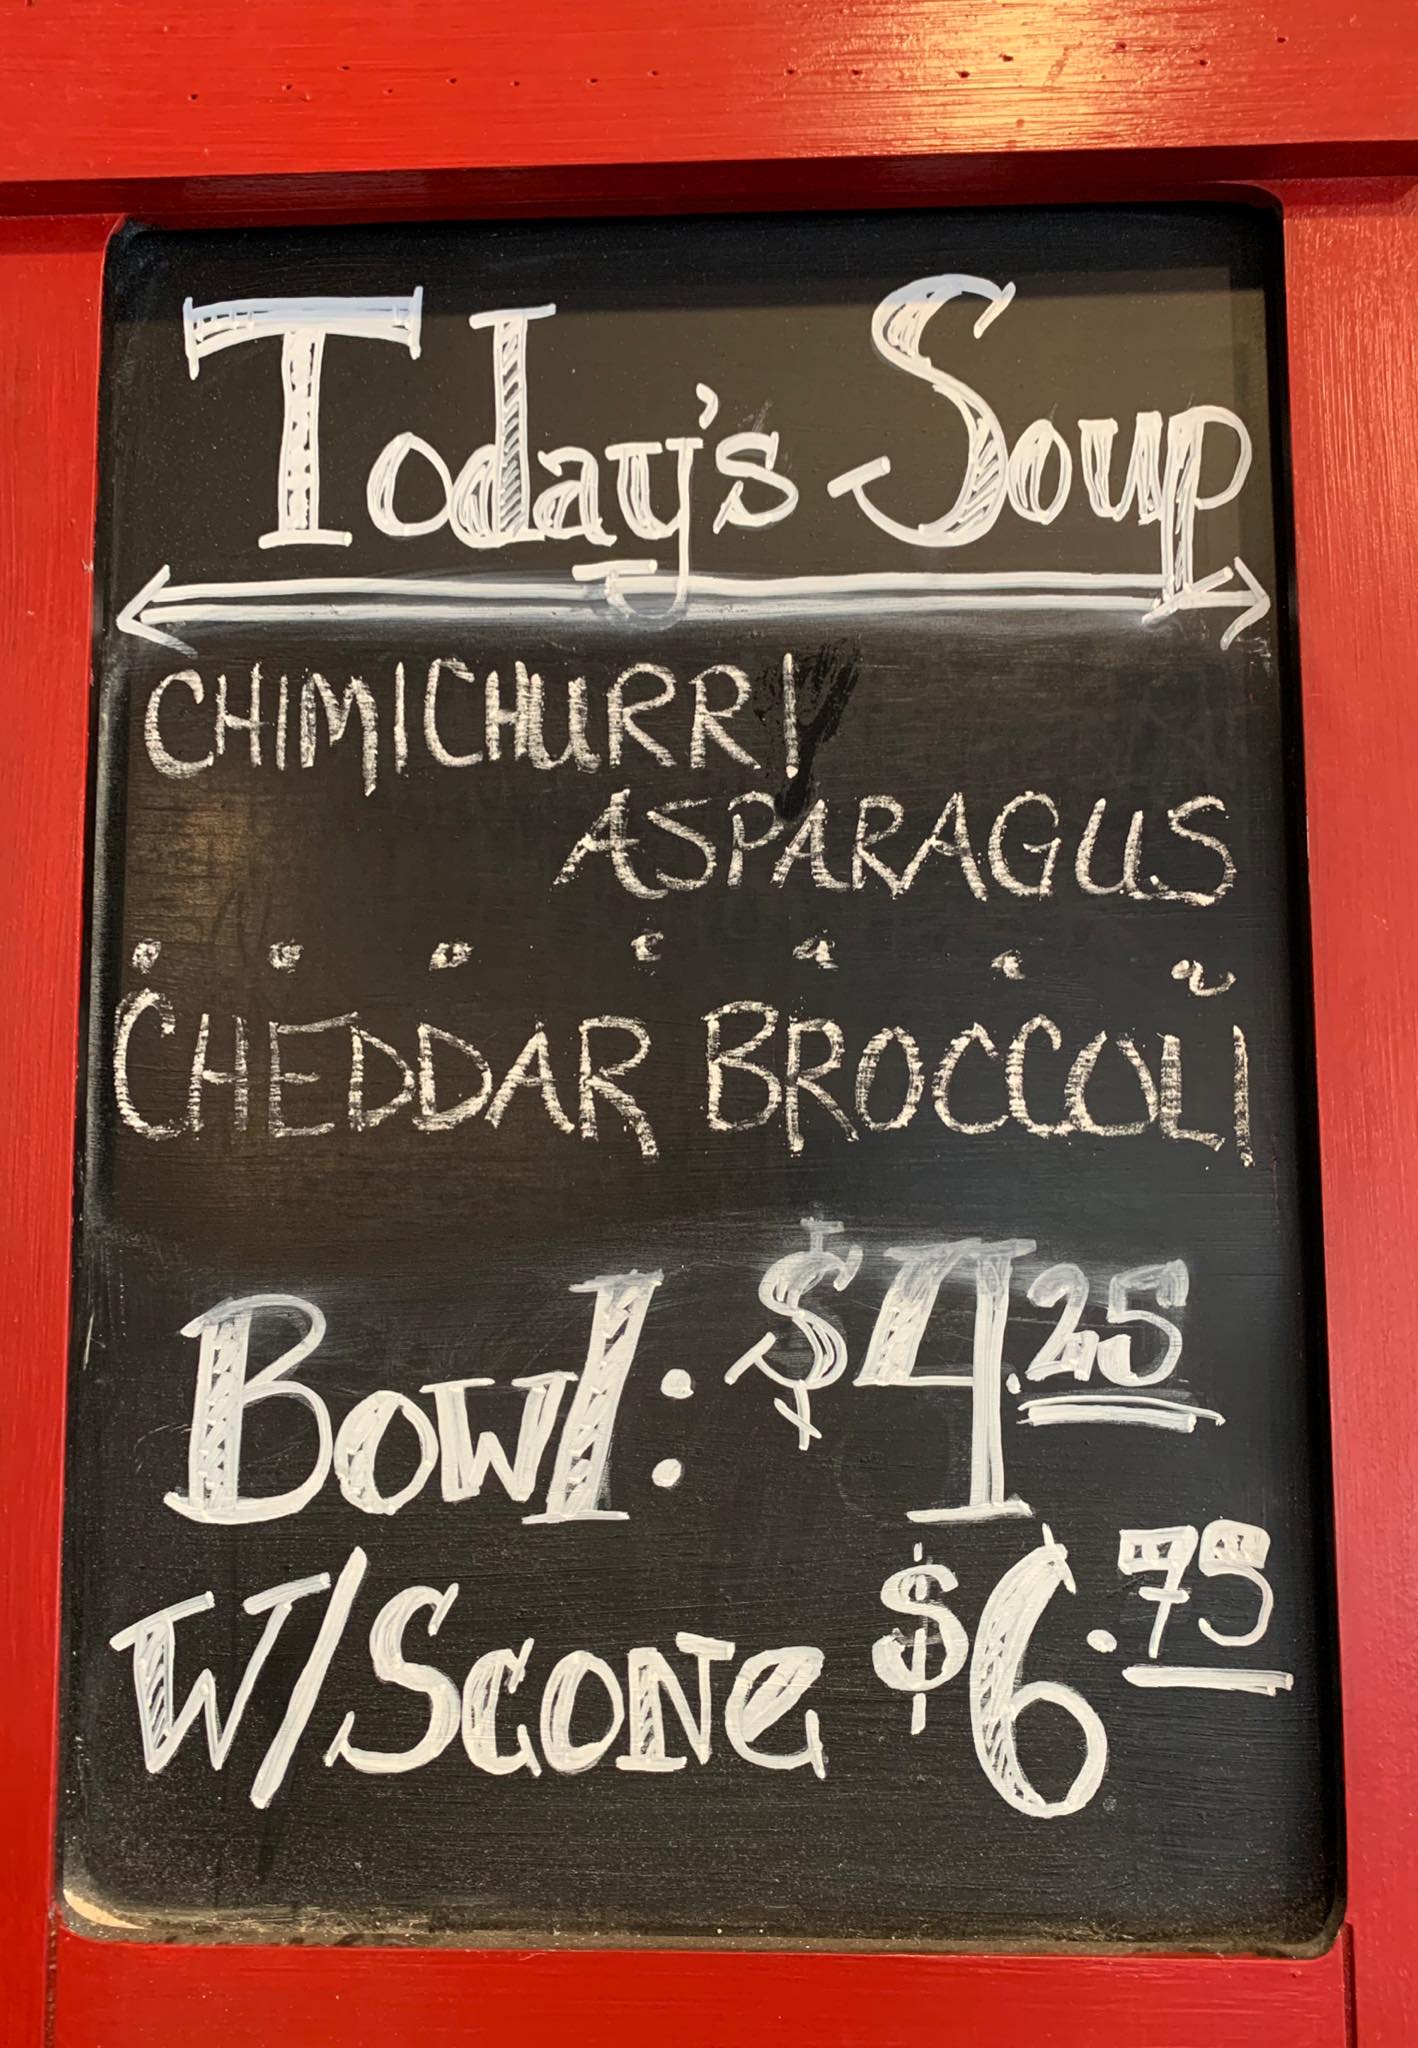 Today's Soup
CHIMICHURRI
ASPARAGUS
CHEDDAR BROCCOLI
Bowl: $4.25
W/Scone $6.75